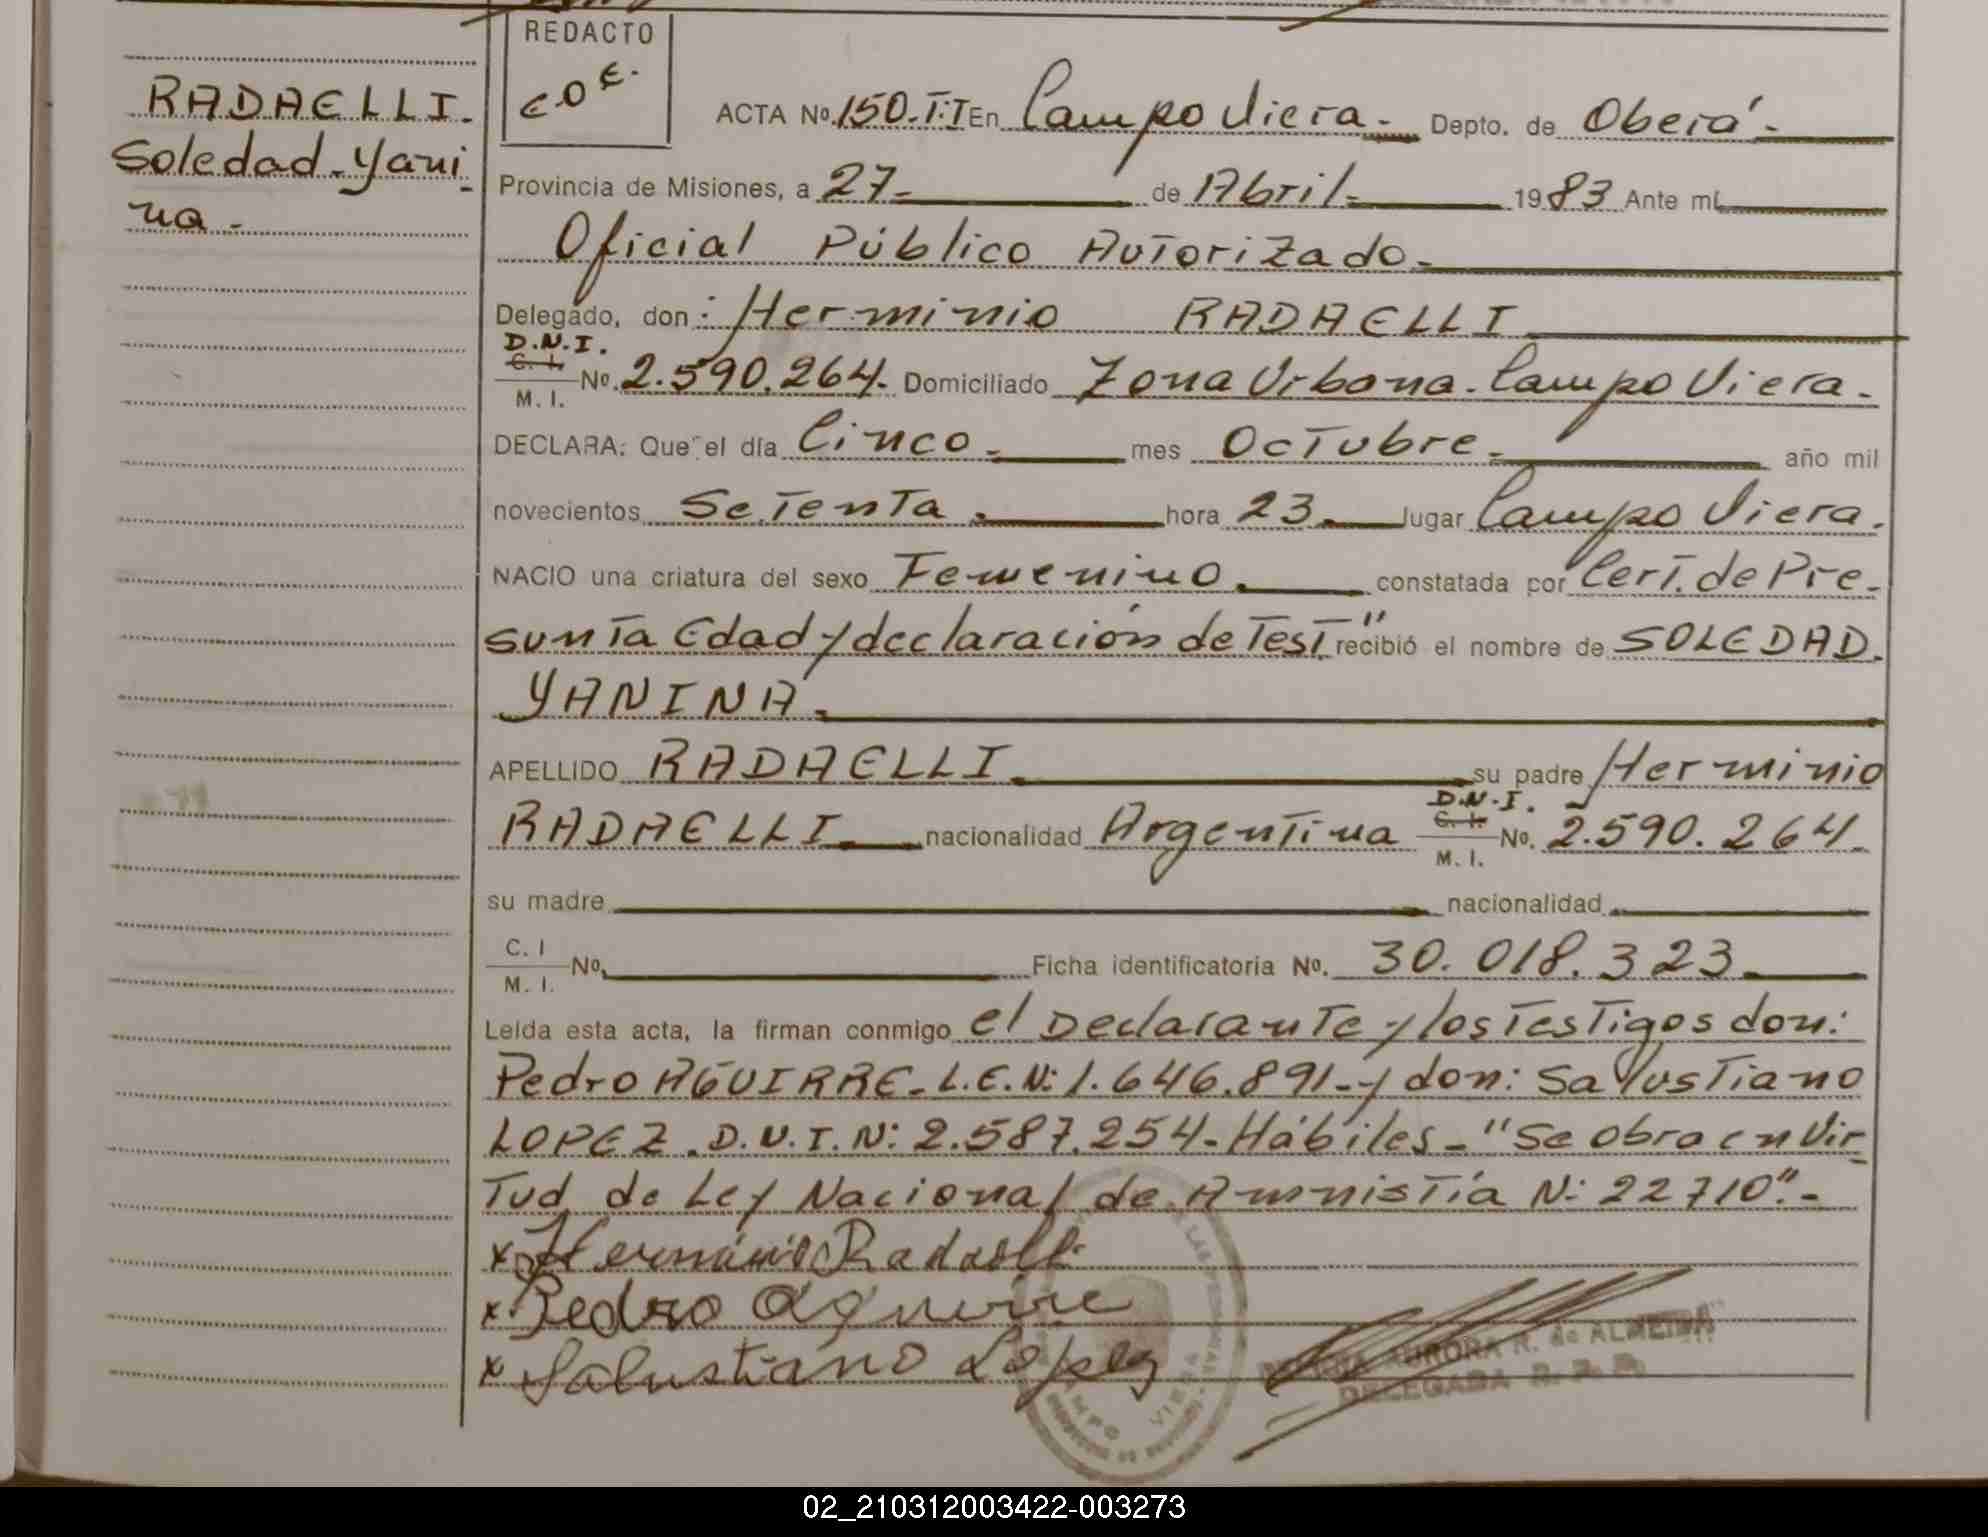 REDACTO
C.O.E.
RADAELLI.
Soledad Yani
na.
ACTA No. 150.T.I En Campo Viera. Depto. de Oberá.
Provincia de Misiones, a 27 de Abril 1983 Ante mí
Oficial Público Autorizado.
Delegado, don: Herminio RADAELLI
D.N.I.
C. I.
M. I. No. 2.590.264. Domiciliado Zona Urbana. Campo Viera.
DECLARA: Que el día Cinco mes Octubre año mil
novecientos Setenta. hora 23 lugar Campo Viera.
NACIO una criatura del sexo Femenino. constatada por Cert. de Pre-
sunta Edad y declaración de Test." recibió el nombre de SOLEDAD
YANINA.
APELLIDO RADAELLI su padre Herminio
RADAELLI nacionalidad Argentina D.N.I. C. I. M. I. No. 2.590.264
su madre nacionalidad
C. I
M. I. No. Ficha identificatoria No. 30.018.323
Leída esta acta, la firman conmigo el Declarante y los Testigos don:
Pedro AGUIRRE. L.E.N: 1.646.891. y don: Salustiano
LOPEZ. D.N.I. N: 2.587.254. Hábiles. "Se obra en Vir
tud de Ley Nacional de Amnistía N: 22710".
x Herminio Radaelli
x Pedro Aguirre
x Salustiano Lopez
AURORA R. de ALMEIDA
DELEGADA
CAMPO VIERA
02_210312003422-003273